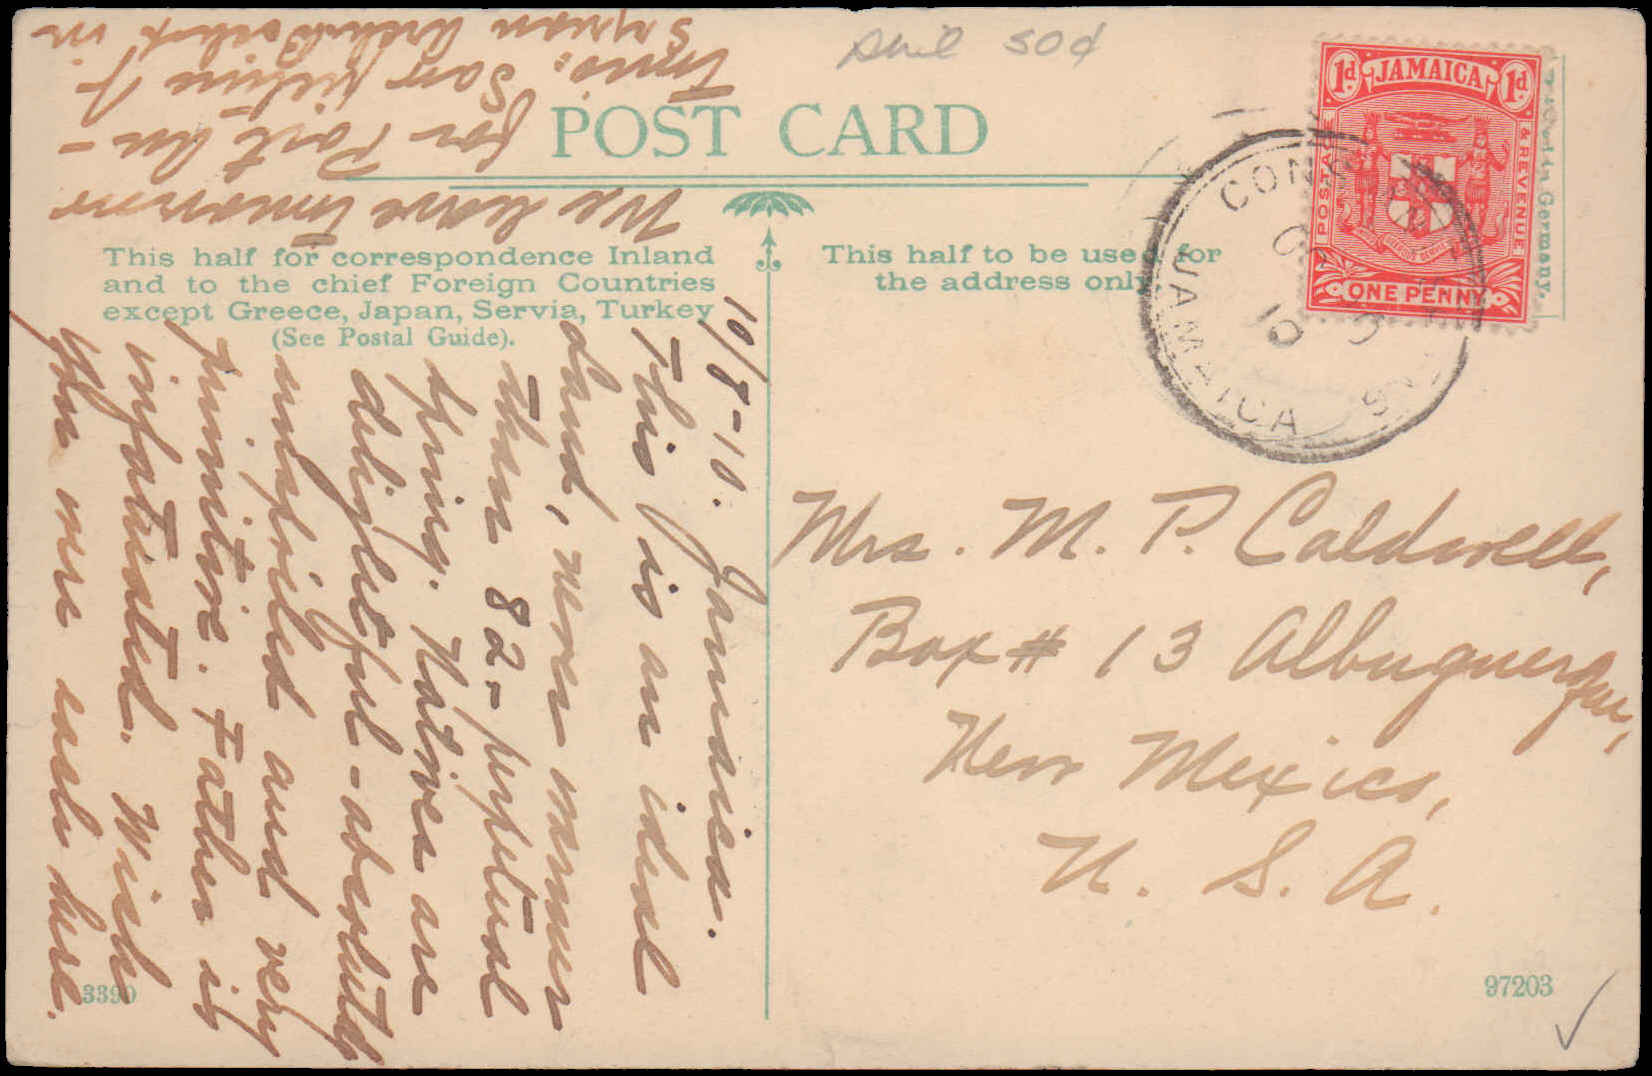 POST CARD
This half for correspondence Inland
and to the chief Foreign Countries
except Greece, Japan, Servia, Turkey
(See Postal Guide).
This half to be used for
the address only
1d JAMAICA 1d
POSTAGE
& REVENUE
ONE PENNY
in Germany.
JAMAICA
10
50¢
10/8-10. Jamaica.
This is an ideal
land, never warmer
than 82 - perpetual
spring. Natives are
delightful - absolutely
unspoiled and very
primitive. Father is
infatuated. Wish
you were each here.
We leave tomorrow
for Port An-
tonio. Saw
Syrian in
Mrs. M. P. Caldwell,
Box # 13 Albuquerque,
New Mexico,
U. S. A.
3390
97203